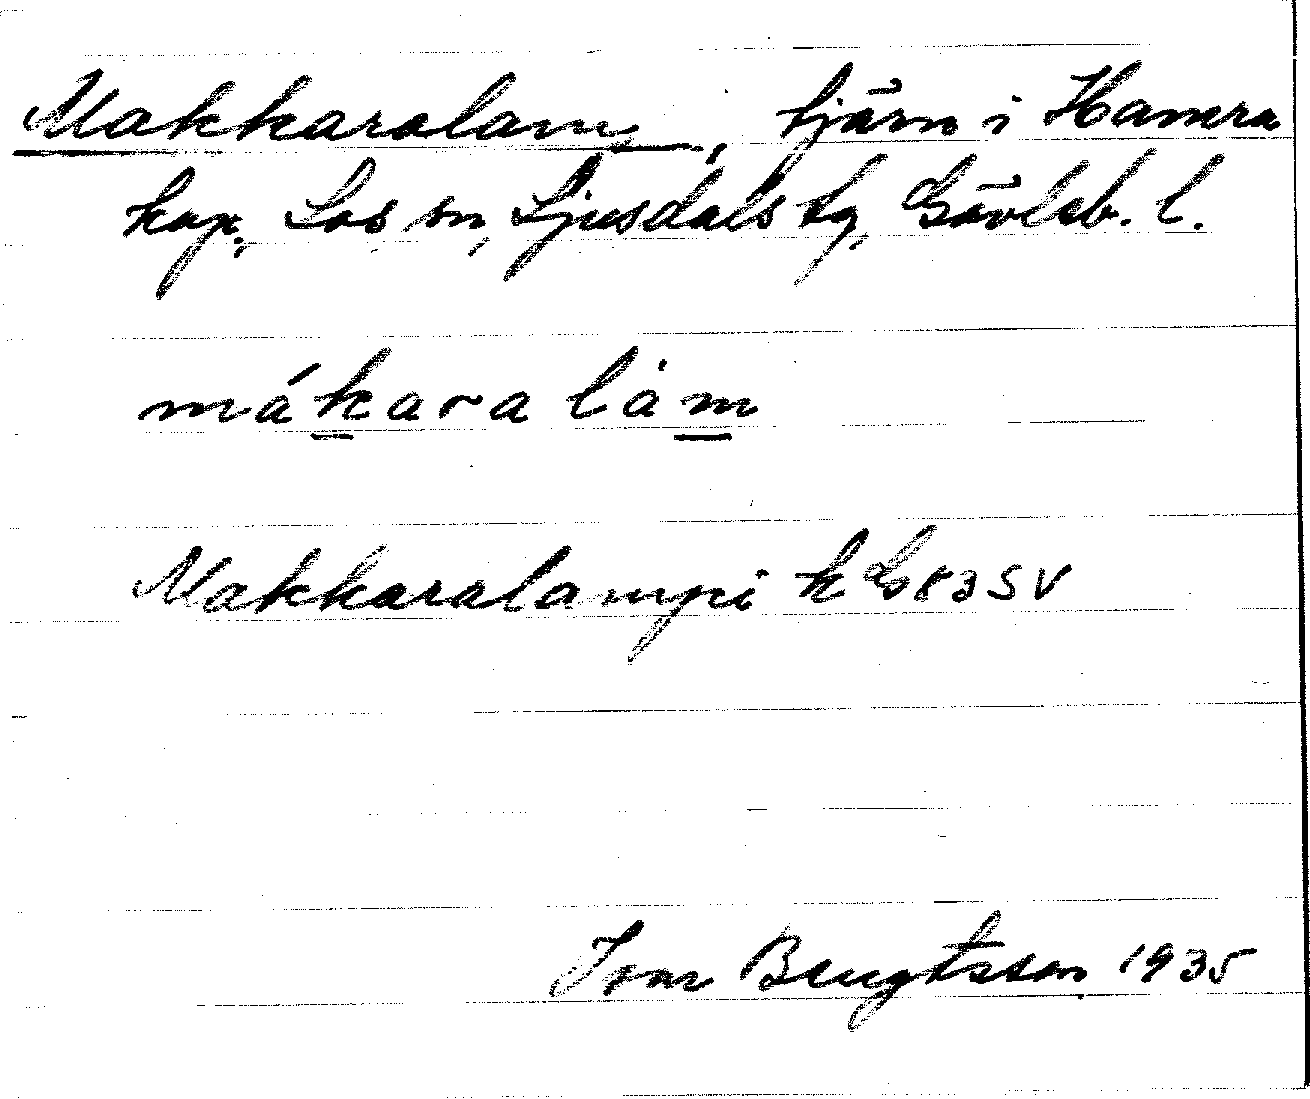 Makkaralam, tjärn i Hamra
kap., Los sn, Ljusdals tg, Gävleb. l.
mákaralàm
Makkaralampi k G 83 SV
Ivar Bengtsson 1935